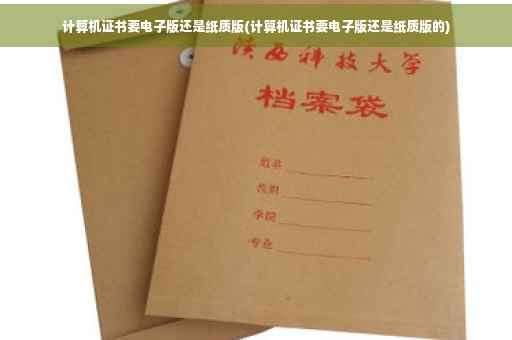 计算机证书要电子版还是纸质版(计算机证书要电子版还是纸质版的)
陕西科技大学
档案袋
姓名
学院
专业